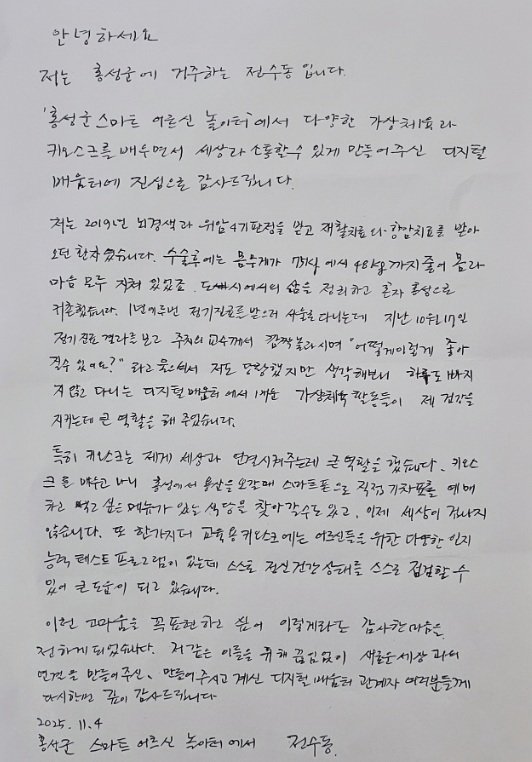 안녕하세요
저는 홍성군에 거주하는 전수동입니다.
'홍성군 스마트 어르신 놀이터'에서 다양한 가상체험과
키오스크를 배우면서 세상과 소통할수 있게 만들어주신 디지털
배움터에 진심으로 감사드립니다.
저는 2019년 뇌경색과 위암4기판정을 받고 재활치료와 항암치료를 받아
오던 환자였습니다. 수술후에는 몸무게가 75kg에서 48kg까지 줄어 몸과
마음 모두 지쳐 있었고 도시에서의 삶을 정리하고 혼자 홍성으로
귀촌했습니다. 1년에 두번 정기진료를 받으러 서울로 다니는데 지난 10월17일
정기검진 결과를 보고 주치의 교수께서 깜짝놀라시며 "어떻게이렇게 좋아
질수 있어요?" 라고 물으셔서 저도 당황했지만 생각해보니 하루도 빠지
지 않고 다니는 디지털배움터에서의 가상체육 활동들이 제 건강을
지키는데 큰 역할을 해 주었습니다.
특히 키오스크는 제게 세상과 연결시켜주는데 큰역할을 했습니다. 키오스
크를 배우고 나니 홍성에서 용산을 오갈때 스마트폰으로 직접 기차표를 예매
하고 먹고 싶은 메뉴가 있는 식당을 찾아갈수도 있고, 이제 세상이 겁나지
않습니다. 또 한가지더 교육용키오스크에는 어르신들을 위한 다양한 인지
능력 테스트 프로그램이 있는데 스스로 정신건강 상태를 스스로 점검할 수
있어 큰 도움이 되고 있습니다.
이런 고마움을 꼭표현하고 싶어 이렇게라도 감사한마음을
전하게 되었습니다. 저같은 이들을 위해 끊임없이 새로운 세상과의
연결을 만들어주신, 만들어주시고 계신 디지털 배움터 관계자 여러분들께
다시한번 깊이 감사드립니다
2025.11.4
홍성군 스마트 어르신 놀이터에서 전수동.